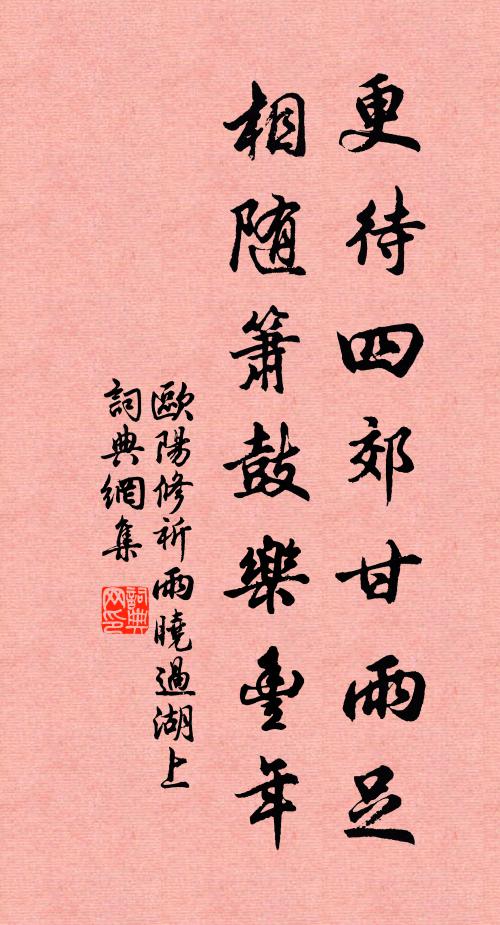 更待四郊甘雨足
相随簫鼓樂豐年
歐陽修祈雨曉過湖上
詞典網集
詞典
网印